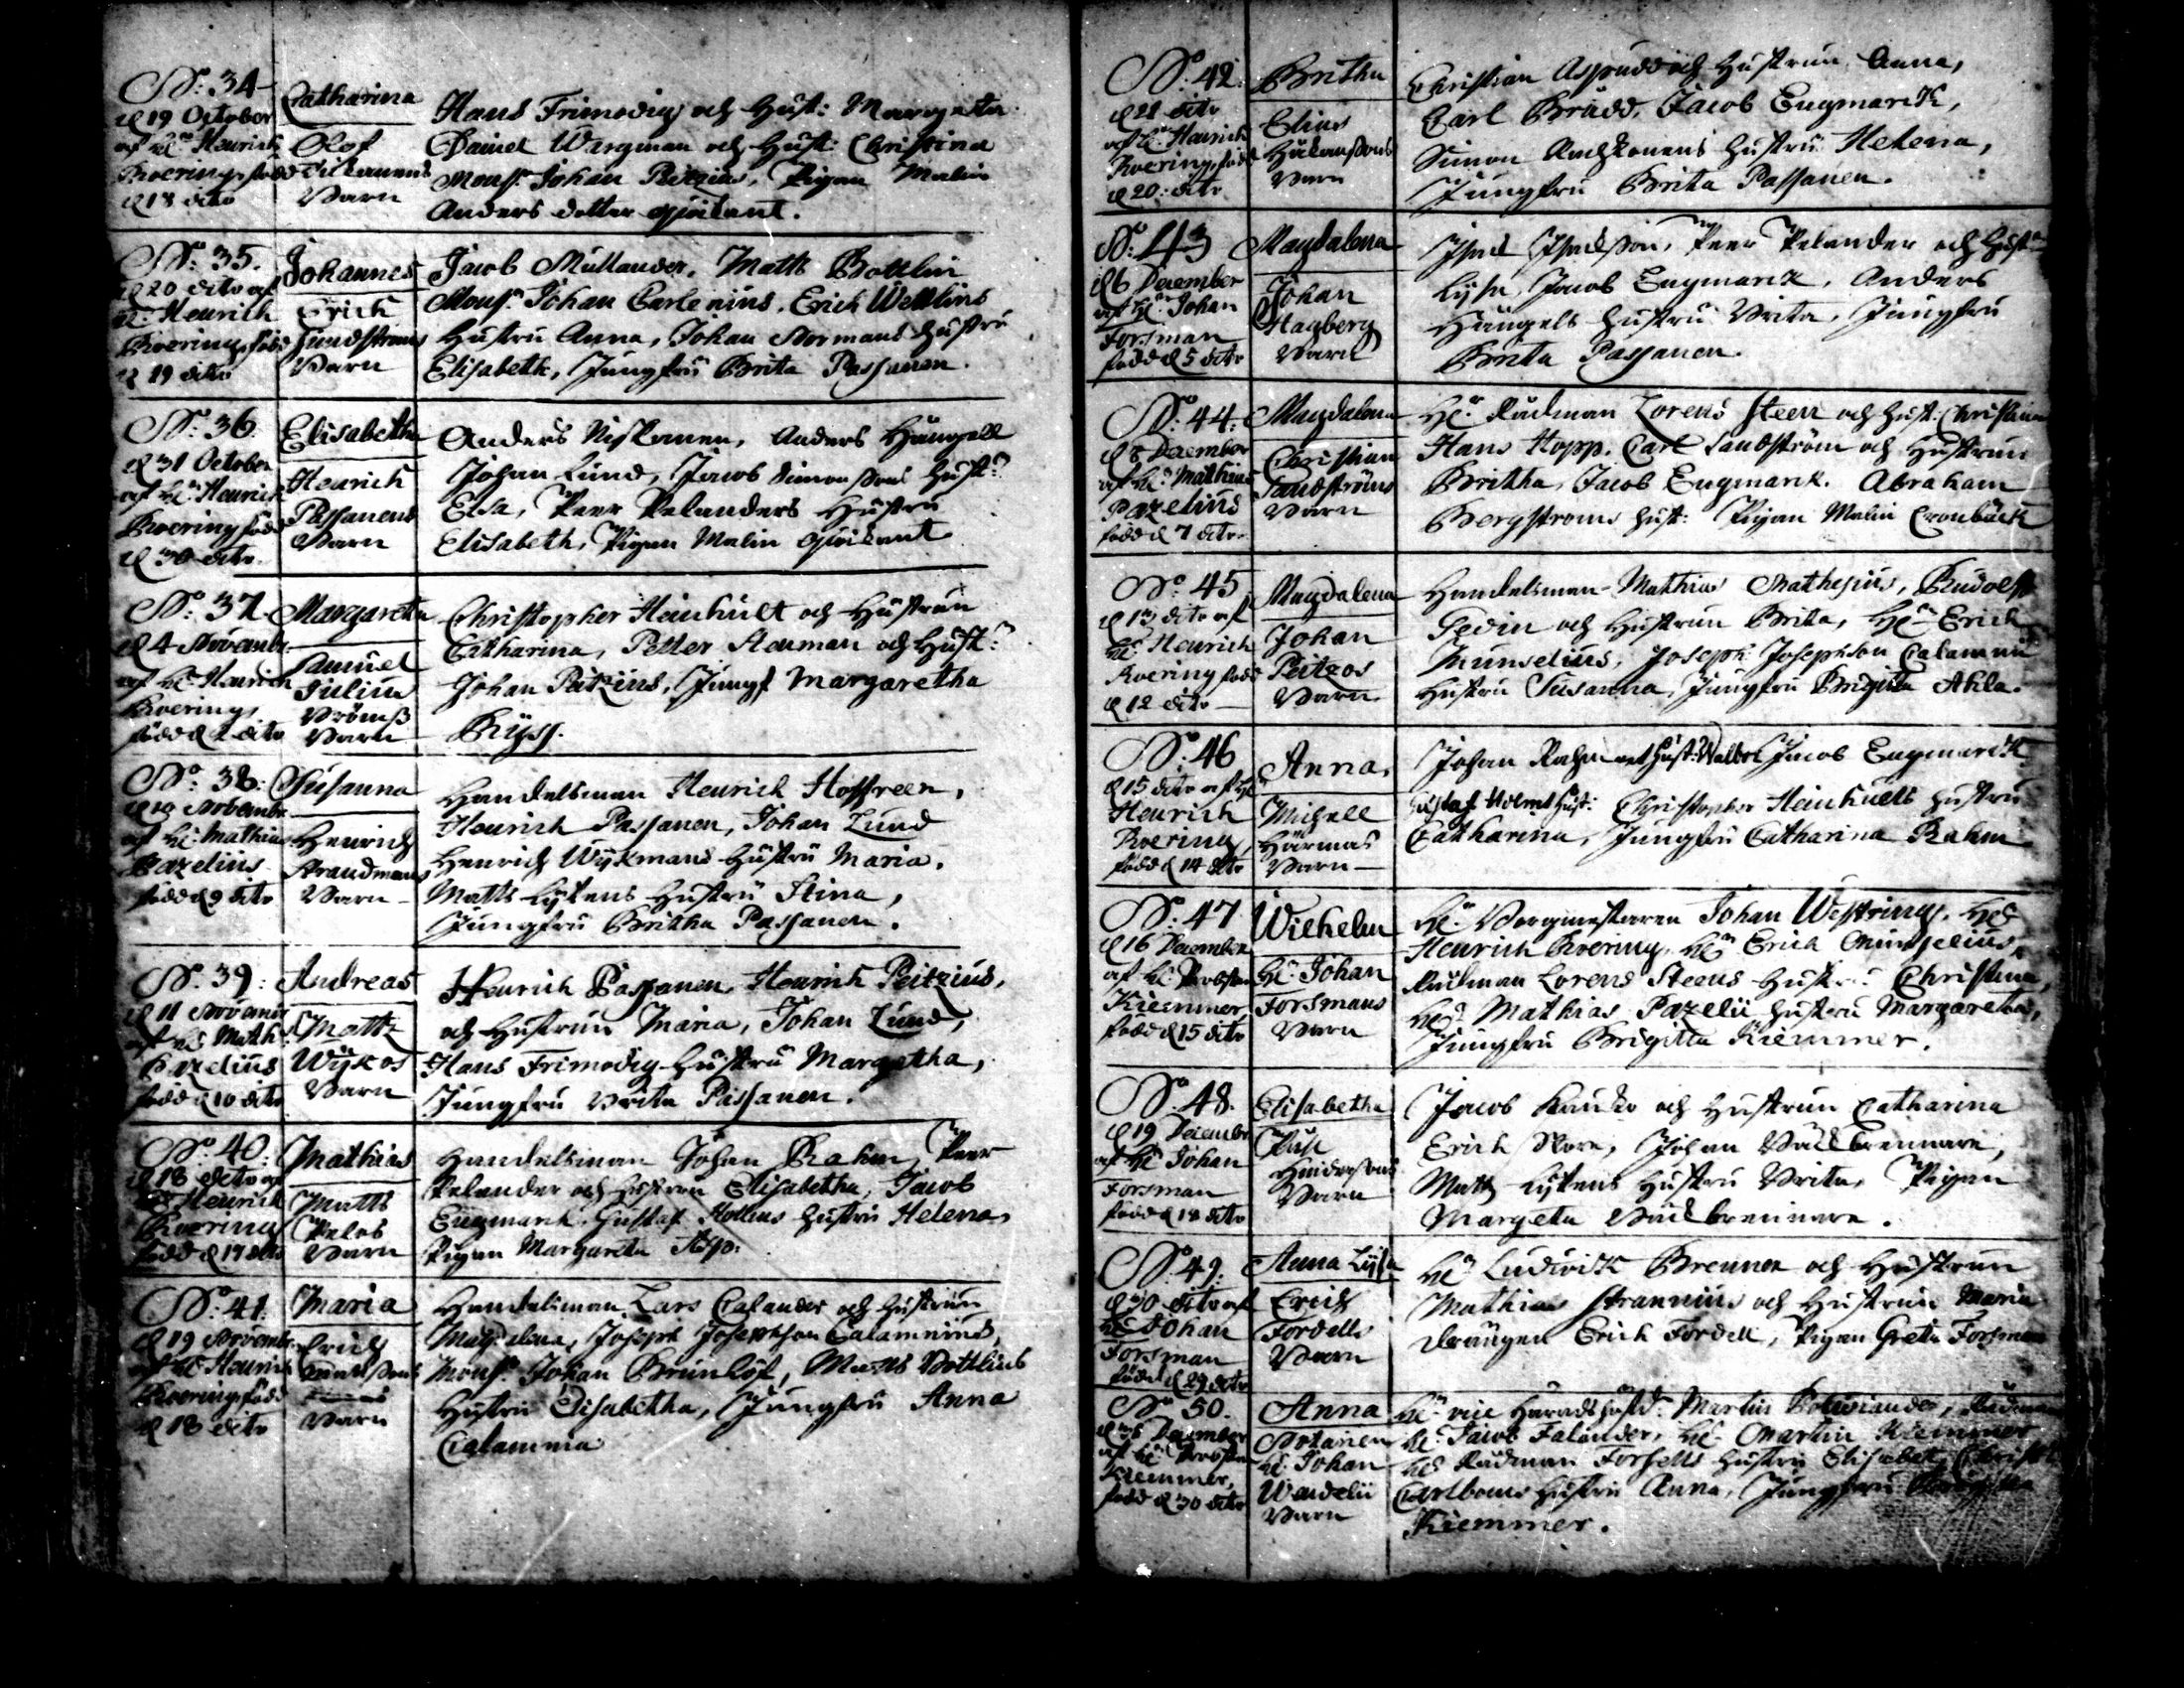 No: 34
d 19 October
af H: Henrich
Kroering, född
d 18 dito
Catharina
Olof
Barn
Hans Frimodig och Hust: Margeta
Daniel Wargman och Hust: Christina
Mons: Johan Peitzius, Pigan Malin
Anders dotter
No: 35.
d 20 dito af
H: Henrich
född
d 19 dito
Johannes
Erich
Sundstroms
Barn
Jacob Mullander, Matts Bottlin
Mons: Johan Carlenius, Erich Wettlins
Hustru Anna, Johan Normans Hustru
Elisabeth, Jungfru Brita Passanen.
No: 36.
d 31 October
af H: Henrich
Kroering född
d 30 dito
Elisabetha
Henrich
Passanens
Barn
Anders Niskanen, Anders Hängell
Johan Lund, Jacob Simonssons Hust:
Elsa, Peer Pelanders Hustru
Elisabeth, Pigan Malin
No: 37.
d 4 Novembr:
af H: Henrich
Kroering,
född d 2 dito
Margareta
Samuel
Julius
Barn
Christopher Heinhult och Hustrun
Catharina, Petter Steuman och Hust:
Johan Peitzius, Jungf Margaretha
Ryss.
No: 38:
d 10 Novembr
af H: Mathias
Pazelius
född d 9 dito
Susanna
Henrich
Strandmans
Barn
Handelsman Henrich Hoffreen,
Henrich Passanen, Johan Lund
Henrich Wykmans Hustru Maria,
Matts Lykens Hustru Stina,
Jungfru Britha Passanen.
No: 39:
d 11 Novembr
af H: Math:
Pazelius
född d 10 dito
Andreas
Matts
Wykos
Barn
Henrich Passanen, Henrich Peitzius,
och Hustrun Maria, Johan Lund,
Hans Frimodig Hustru Margetha,
Jungfru Brita Passanen.
No: 40:
d 18 dito af
H: Henrich
Kroering
född d 17 dito
Mathias
Matts
Pelos
Barn
Handelsman Johan Rahm, Peer
Pelander och Hustrun Elisabetha, Jacob
Engmark, Gustaf Holms Hustru Helena,
Pigan Margareta
No: 41.
d 19 Novembr:
af H: Henrich
Kroering född
d 18 dito
Maria
Erich
Barn
Handelsman Lars Calander och Hustrun
Magdalena, Joseph Josephson Calamnius,
Mons: Johan Brunlöf, Matts Bottlins
Hustru Elisabetha, Jungfru Anna
Calamnia
No: 42.
d 21 dito
af H: Henrich
Kroering, född
d 20: dito
Britha
Elias
Barn
Christian Asprudd och Hustrun Anna,
Carl Brudd, Jacob Engmarck,
Simon Hustru Helena,
Jungfru Brita Passanen.
No: 43
d 6 December
af H: Johan
Forsman
född d 5 dito
Magdalena
Johan
Hagberg
Barn
Peer Pelander och Hust:
Lysa, Jacob Engmarck, Anders
Hängels Hustru Brita, Jungfru
Brita Passanen.
No: 44.
d 8 December
af H: Mathias
Pazelius
född d 7 dito.
Magdalena
Christian
Sandströms
Barn
H: Rådman Lorens Steen och Hust: Christina
Hans Hopp, Carl Sandström och Hustrun
Britha, Jacob Engmark, Abraham
Bergstroms Hust: Pigan Malin Cronbäck
No: 45
d 13 dito af
H: Henrich
Kroering född
d 12 dito
Magdalena
Johan
Peitzos
Barn
Handelsman Mathias Mathesius, Rudolf
Gedin och Hustrun Brita, H: Erich
Munselius, Joseph Josephson Calamnii
Hustru Susanna, Jungfru Brigitta Ahla.
No: 46
d 15 dito af H:
Henrich
Kroering
född d 14 dito
Anna.
Michell
Härmas
Barn
Johan Rahm och Hust: Walbor Jacob Engmarck
Gustaf Holms Hust: Christopher Heinhults Hustru
Catharina, Jungfru Catharina Rahm
No: 47
d 16 December
af H: Probsten
Kiemmer
född d 15 dito
Wilhelm
H: Johan
Forsmans
Barn
H: Borgmestaren Johan Westring, H:
Henrich Kroering, H: Erich Munselius,
Rådman Lorens Steens Hustru Christina,
H: Mathias Pazelii Hustru Margareta,
Jungfru Brigitta Kiemmer.
No: 48.
d 19 December
af H: Johan
Forsman
född d 18 dito
Elisabetha
Barn
Jacob Kauko och Hustrun Catharina
Erich Johan Bäckbrennare,
Matts Lykens Hustru Brita, Pigan
Margeta Bäckbrennare.
No: 49:
d 30 dito af
H: Johan
Forsman
född d 29 dito
Anna Lysa
Erich
Fordells
Barn
H: Ludwick Brenner och Hustrun
Mathias Strannius och Hustrun Maria
Drängen Erich Fordell, Pigan Greta Forsman
No: 50.
December
af H: Probsten
Kiemmer,
född d 30 dito
Anna
H: Johan
Wendelii
Barn
H: vice Häradshöfd: Martin
H: Jacob Falander, H: Martin Kiemmer
H: Rådman Forssells Hustru Elisabet, Christ:
Carlboms Hustru Anna, Jungfru
Kiemmer.